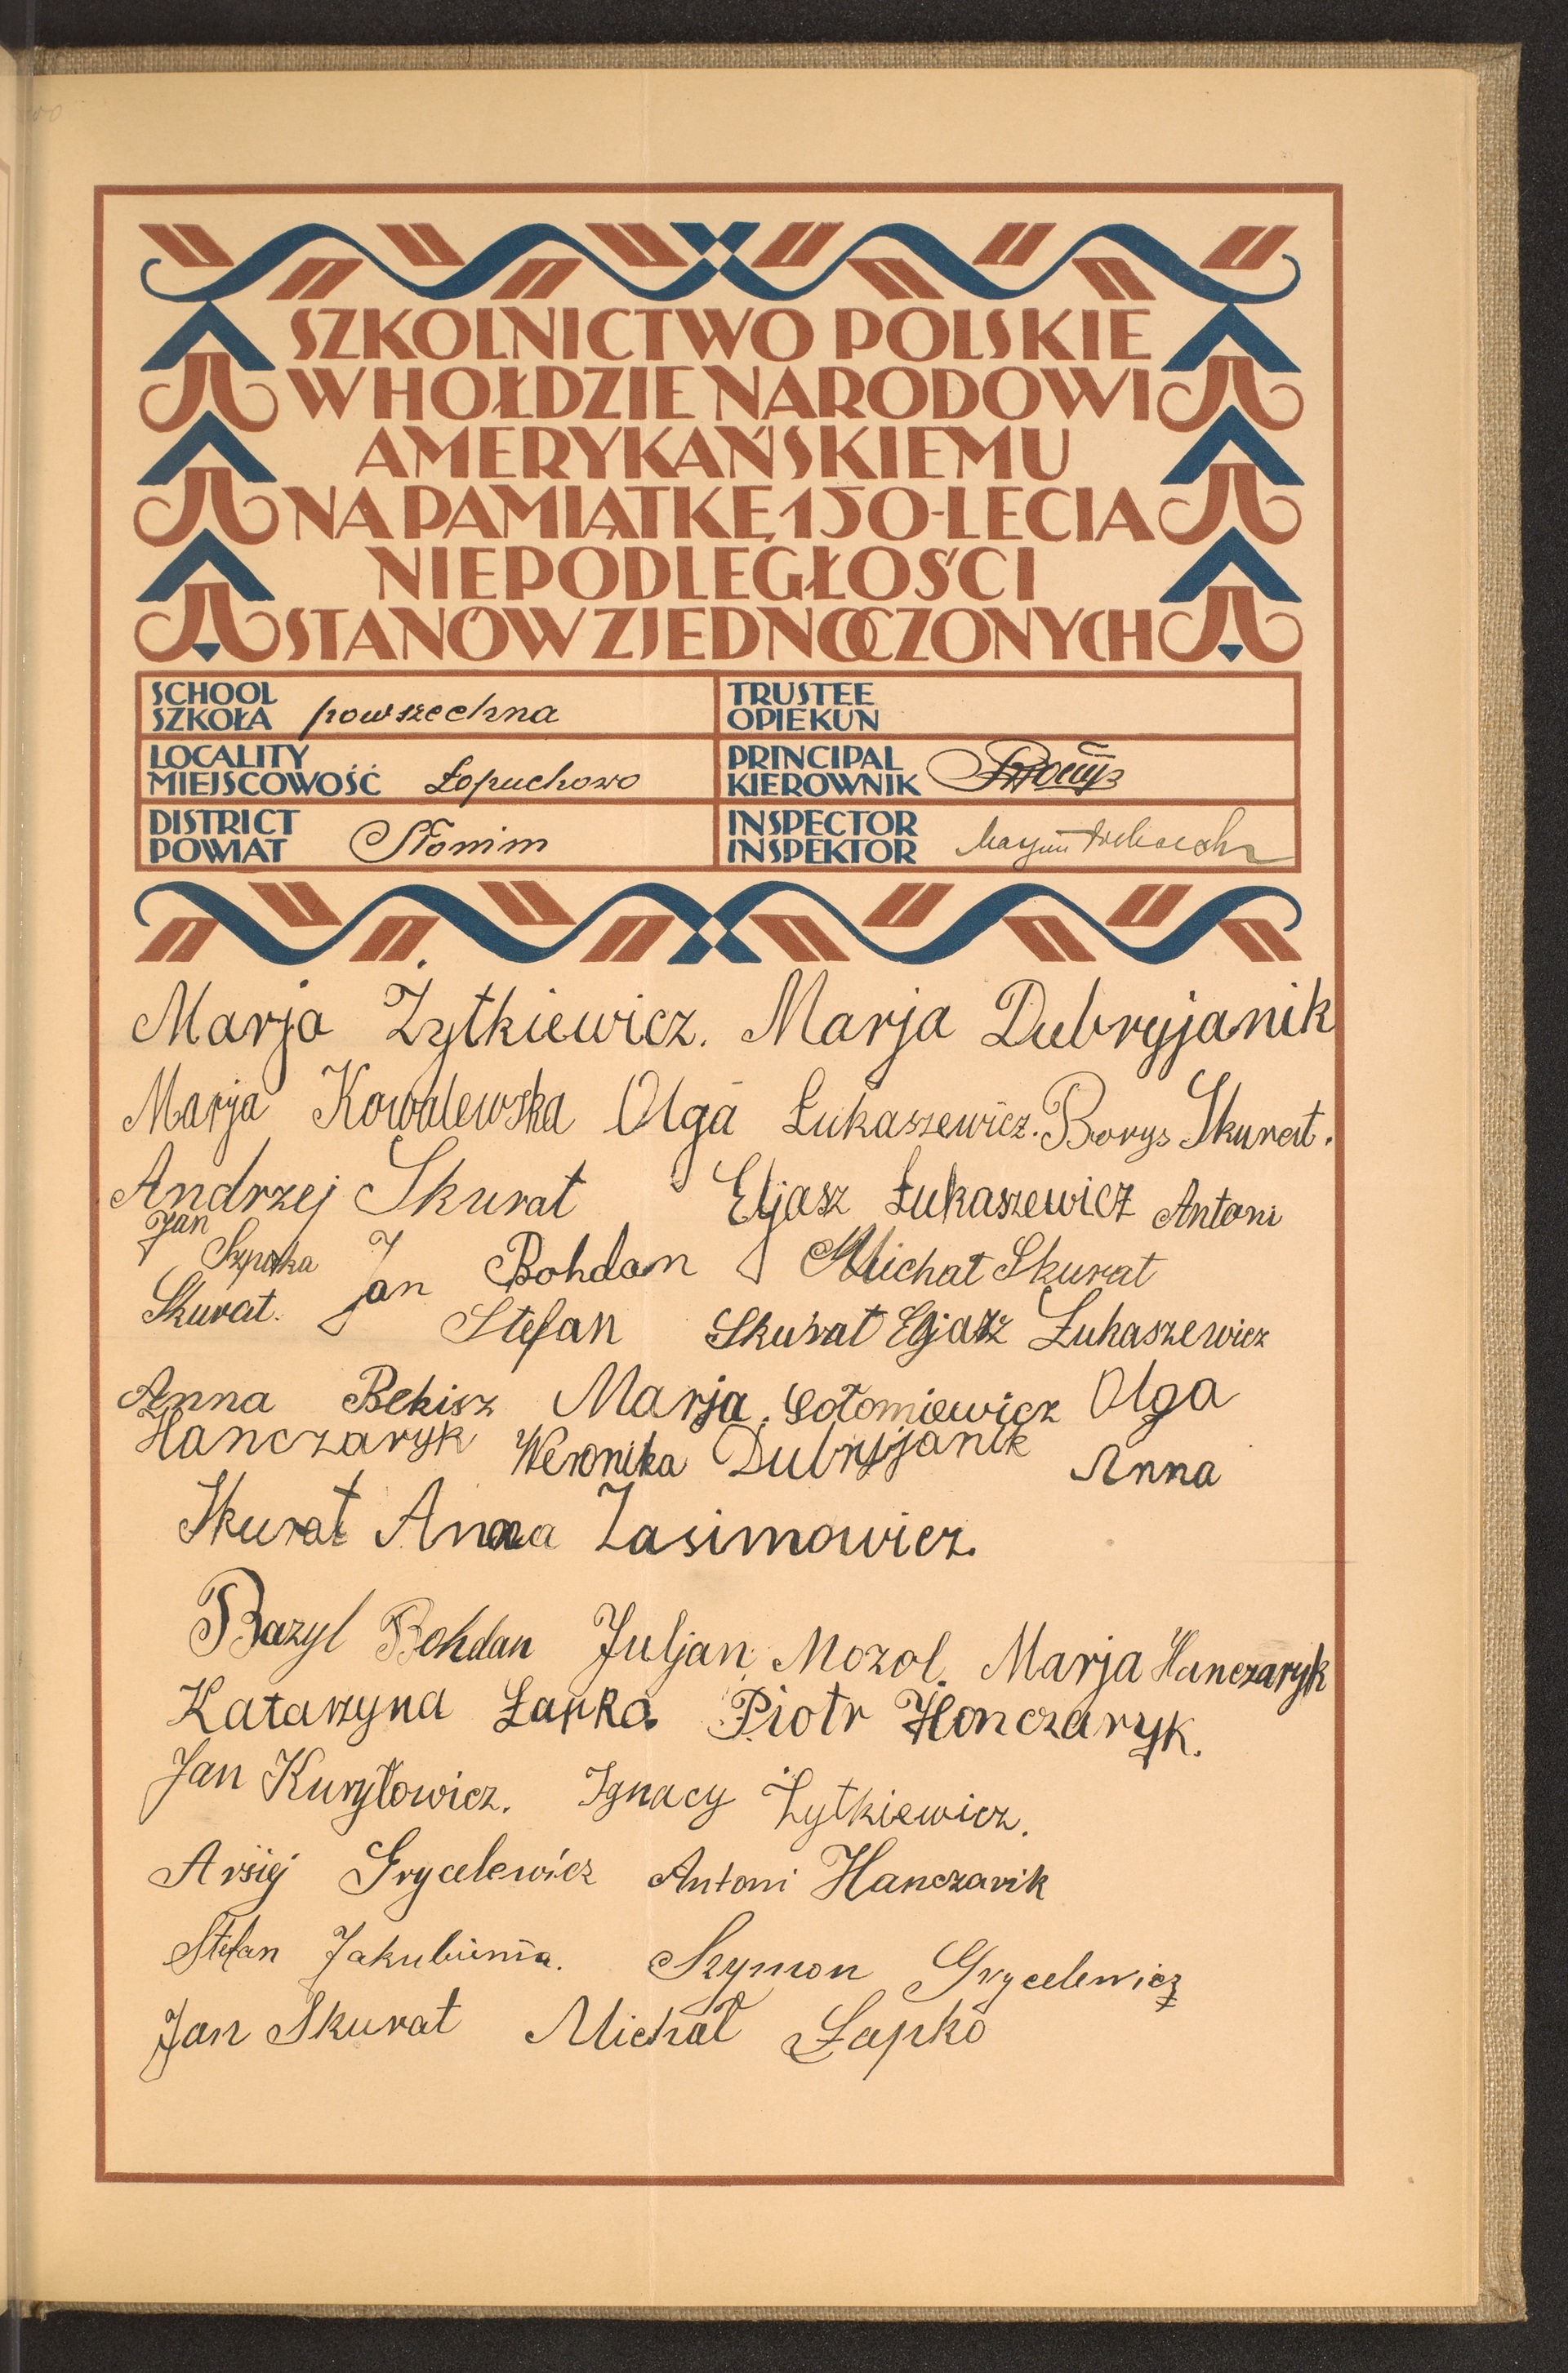 SZKOLNICTWO POLSKIE
W HOŁDZIE NARODOWI
AMERYKAŃSKIEMU
NA PAMIĄTKĘ 150-LECIA
NIEPODLEGŁOŚCI
STANÓW ZJEDNOCZONYCH
SCHOOL
SZKOŁA powszechna
TRUSTEE
OPIEKUN
LOCALITY
MIEJSCOWOŚĆ Łopuchowo
PRINCIPAL
KIEROWNIK
DISTRICT
POWIAT Słonim
INSPECTOR
INSPEKTOR
Marja Żytkiewicz. Marja Dubryjanik
Marja Kowalewska Olga Łukaszewicz. Borys Skurat.
Andrzej Skurat Eljasz Łukaszewicz Antoni
Jan Szpotka
Skurat. Jan Bohdan Michał Skurat
Stefan Skurat Eljasz Łukaszewicz
Anna Bekisz Marja Gołomiewicz Olga
Hanczaryk Weronika Dubryjanik Anna
Skurat Anna Zasimowicz.
Bazyl Bohdan Juljan Mozol. Marja Hanczaryk
Katarzyna Łapko. Piotr Honczaryk.
Jan Kuryłowicz. Ignacy Żytkiewicz.
Arsiej Grycelewicz Antoni Hanczarik
Stefan Szymon Grycelewicz
Jan Skurat Michał Łapko